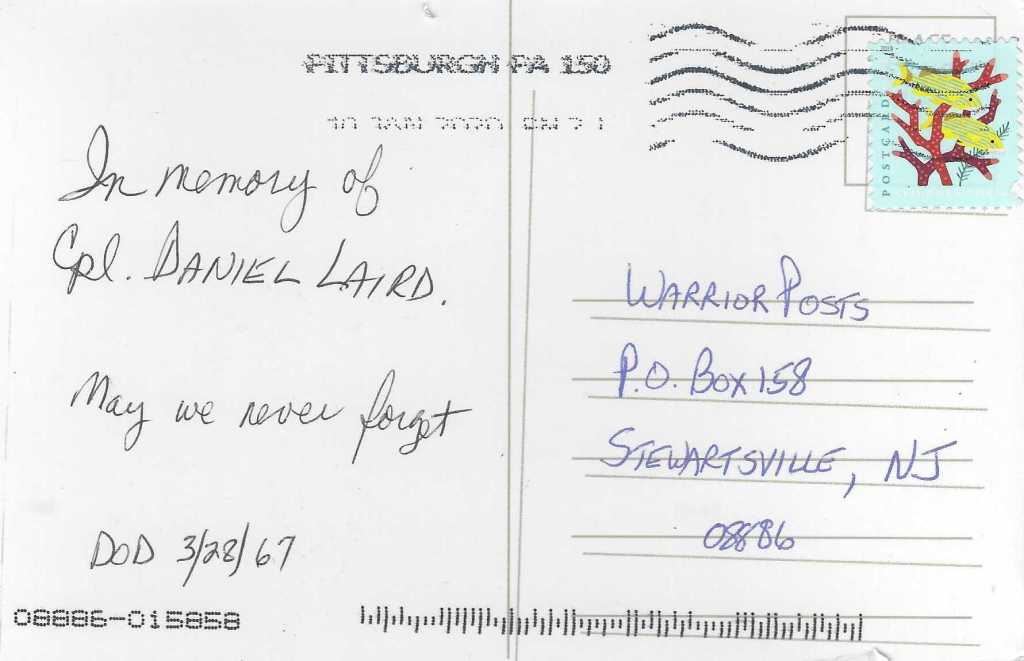 PITTSBURGH PA 150
In memory of
Cpl. DANIEL LAIRD.
May we never forget
DOD 3/28/67
2019
POSTCARD
WARRIOR POSTS
P.O. BOX 158
STEWARTSVILLE, NJ
08886
08886-015858